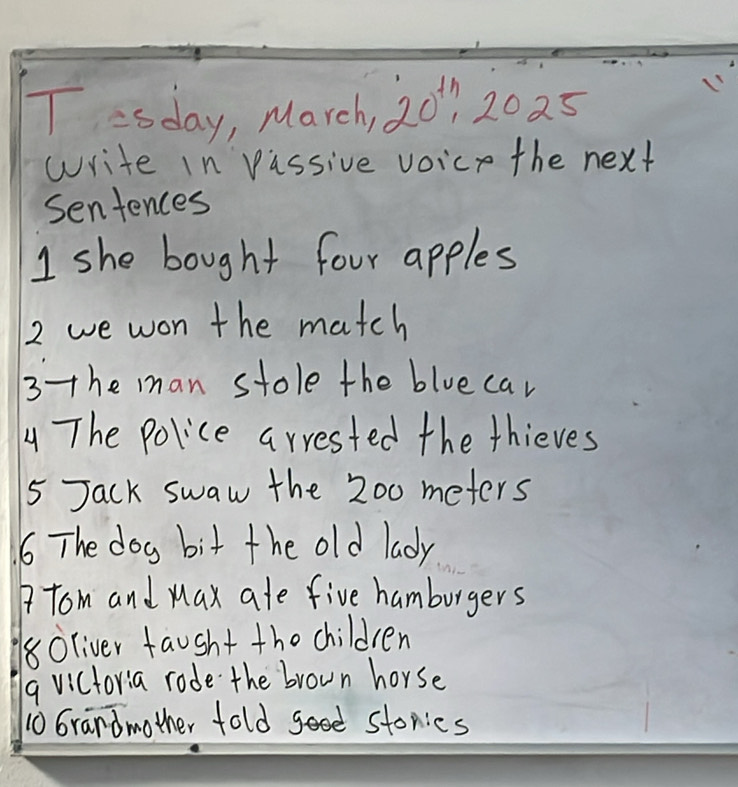 T esday, March, 20th, 2025
write in passive voice the next
sentences
1 she bought four apples
2 we won the match
3 the man stole the blue car
4 The police arrested the thieves
5 Jack swaw the 200 meters
6 The dog bit the old lady
7 Tom and Max ate five hamburgers
8 Oliver taught the children
9 victoria rode the brown horse
10 Grandmother told good stories